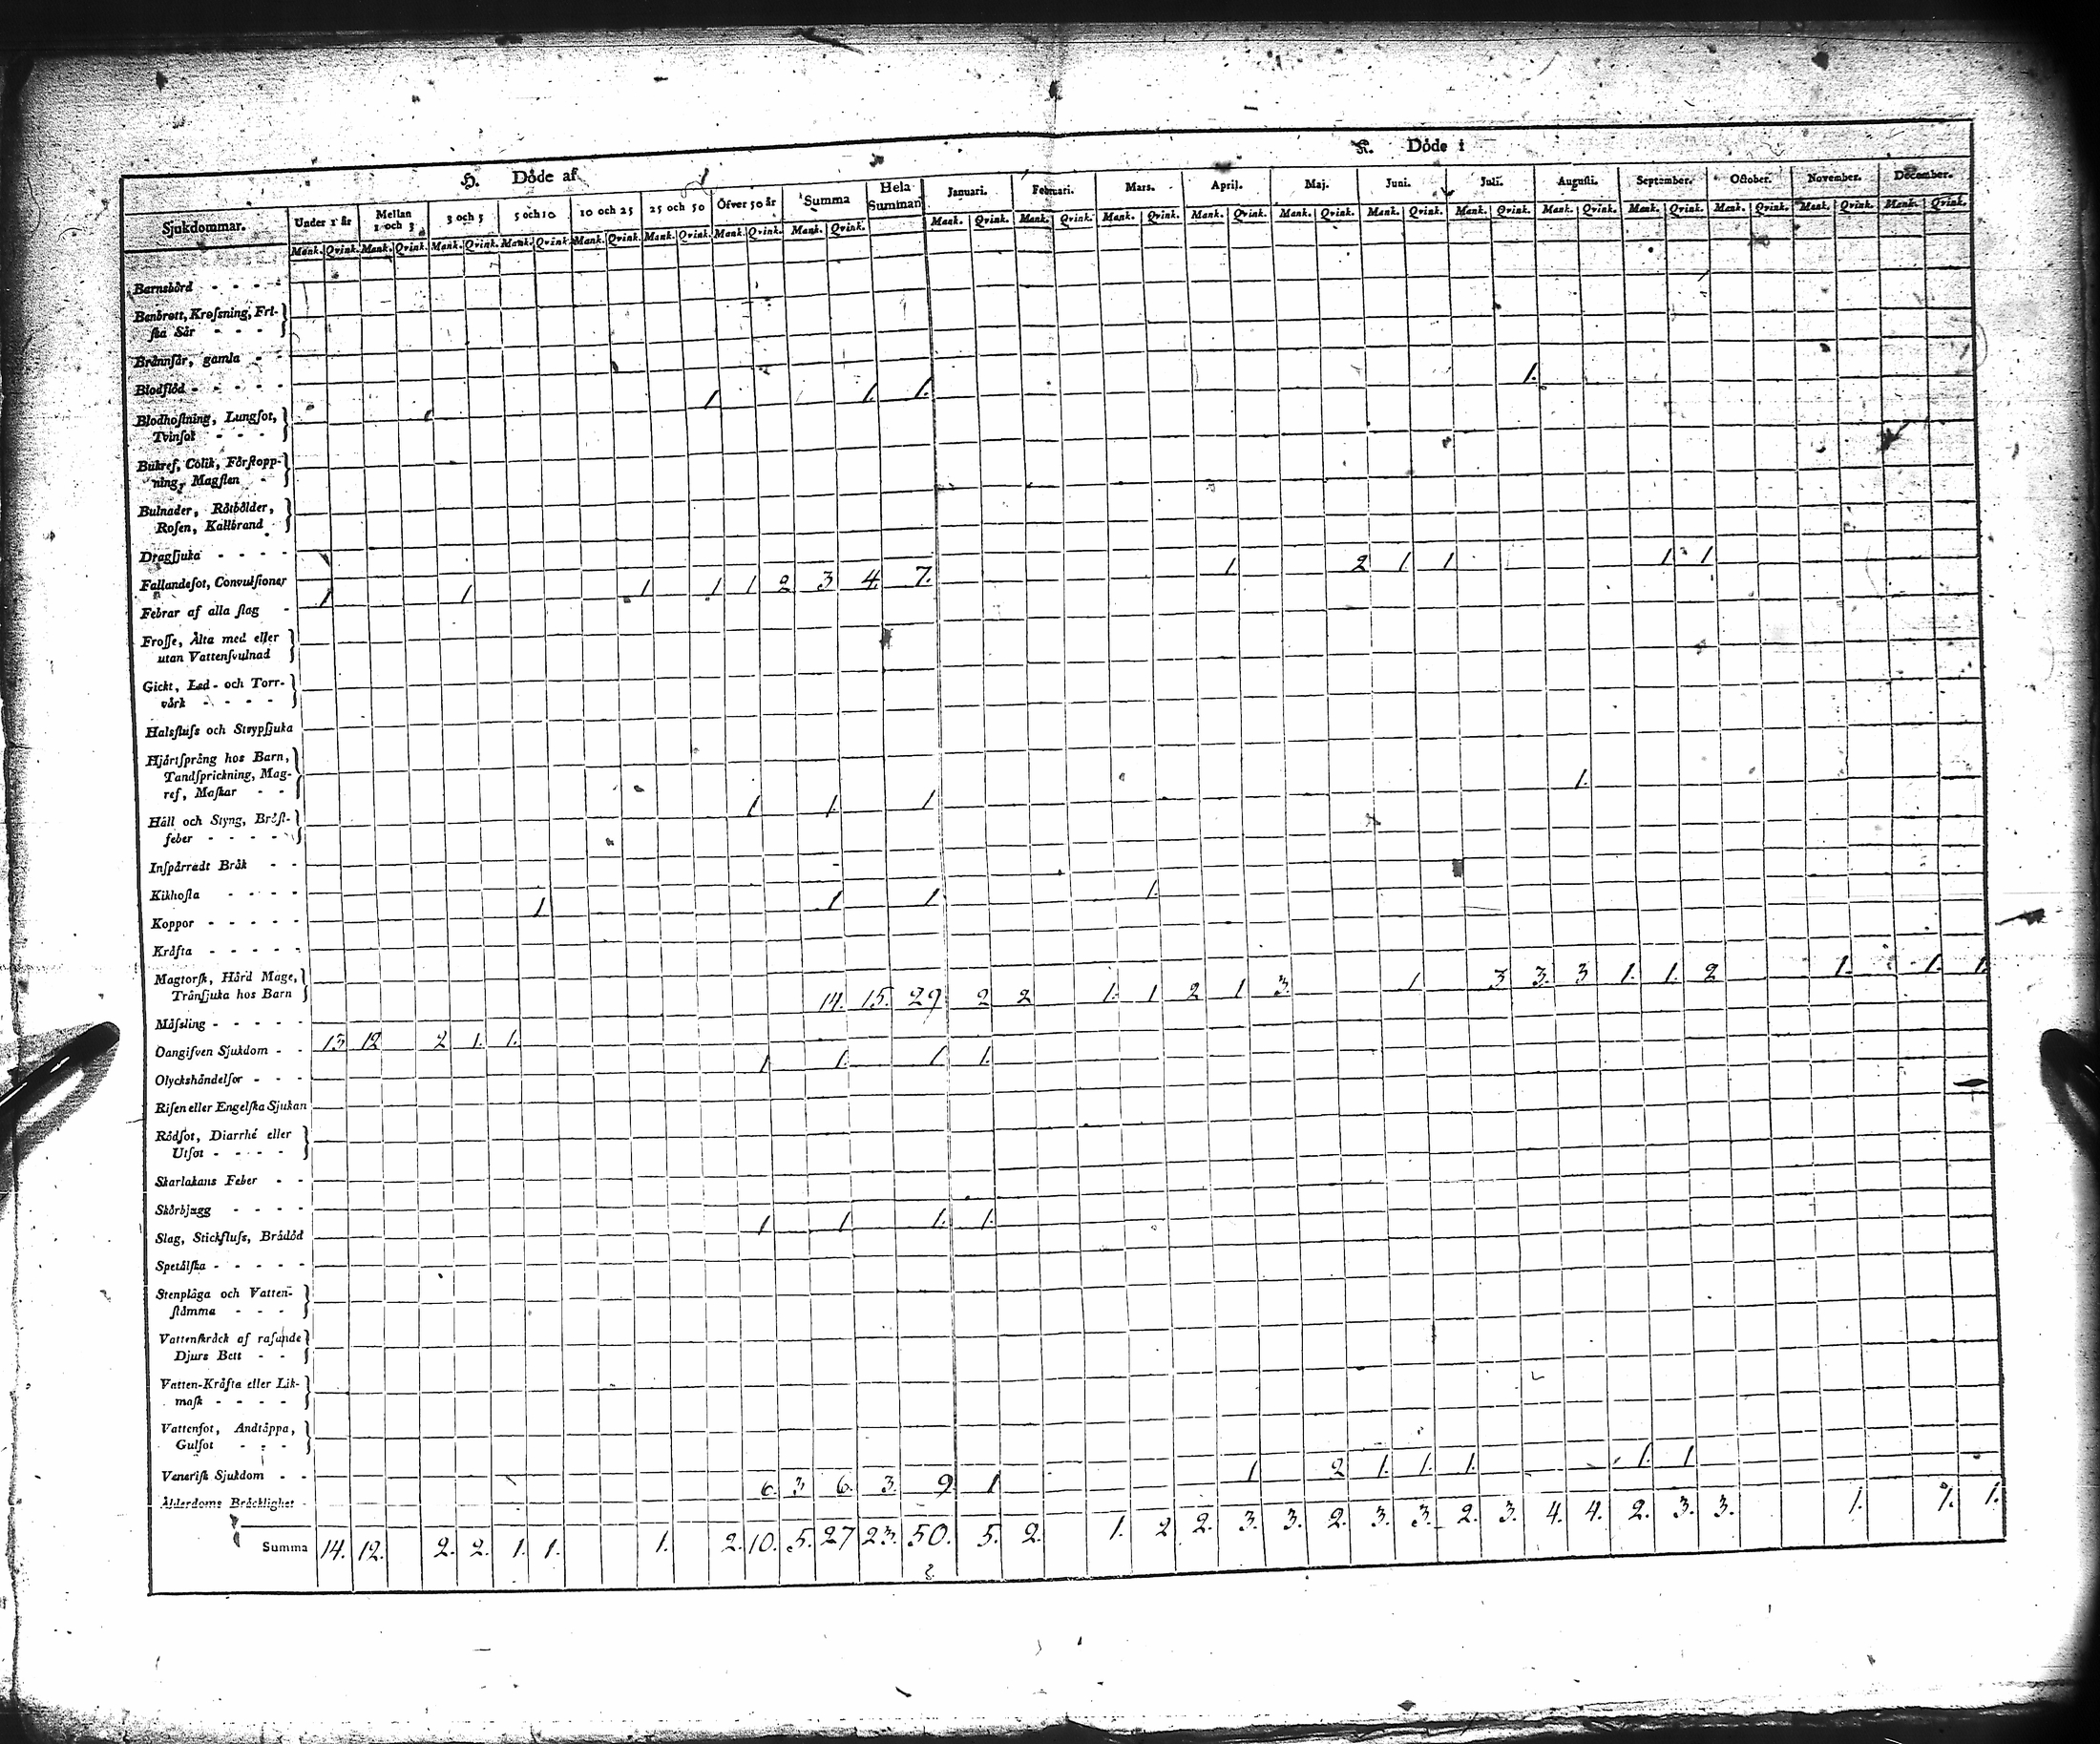 H. Döde af
K. Döde i
Sjukdommar. Under 1 år Mellan 1 och 3 3 och 5 5 och 10 10 och 25 25 och 50 Öfver 50 år Summa Hela Summan Januari. Februari. Mars. April. Maj. Juni. Juli. Augusti. September. October. November. December.
Mank. Qvink. Mank. Qvink. Mank. Qvink. Mank. Qvink. Mank. Qvink. Mank. Qvink. Mank. Qvink. Mank. Qvink. Mank. Qvink. Mank. Qvink. Mank. Qvink. Mank. Qvink. Mank. Qvink. Mank. Qvink. Mank. Qvink. Mank. Qvink. Mank. Qvink. Mank. Qvink. Mank. Qvink. Mank. Qvink.
Barnsbörd
Benbrott, Kroſsning, Fri-
ſka Sår
Brånnſår, gamla
Blodflöd 1 1. 1. 1.
Blodhoſtning, Lungſot,
Tvinſot
Bukref, Colik, Förſtopp-
ning, Magſten
Bulnader, Rötbölder,
Roſen, Kallbrand
Dragſjuka
Fallandeſot, Convulſioner
Febrar af alla ſlag 1 1 1 1 1 2 3 4. 7. 1 2 1 1 1 1
Froſſe, Älta med eller
utan Vattenſvulnad
Gickt, Led- och Torr-
vårk
Halsfluſs och Strypſjuka
Hjärtſprång hos Barn,
Tandſprickning, Mag-
ref, Maſkar
Håll och Styng, Bröſt-
feber 1 1. 1 1.
Inſpärradt Bråk
Kikhoſta
Koppor 1 1 1. 1.
Kräfta
Magtorſk, Hård Mage,
Tränſjuka hos Barn
Måſsling
Oangifven Sjukdom 13 12 2 1. 1. 14. 15. 29 2 2 1. 1 2 1 3. 1 3 3. 3 1. 1. 2 1. 1. 1.
Olyckshändelſor 1 1. 1. 1.
Riſen eller Engelſka Sjukan
Rödſot, Diarrhé eller
Utſot
Skarlakans Feber
Skörbjugg
Slag, Stickfluſs, Brådöd 1 1 1. 1.
Spetälſka
Stenplåga och Vatten-
ſtämma
Vattenſkräck af raſande
Djurs Bett
Vatten-Kräfta eller Lik-
maſk
Vattenſot, Andtäppa,
Gulſot
Veneriſk Sjukdom
Ålderdoms Bräcklighet 6. 3 6. 3. 9 1 1 2 1. 1. 1. 1. 1
Summa 14. 12. 2. 2. 1. 1. 1. 2. 10. 5. 27 23. 50. 5. 2. 1. 2 2. 3. 3. 2. 3. 3. 2. 3. 4. 4. 2. 3. 3. 1. 1.